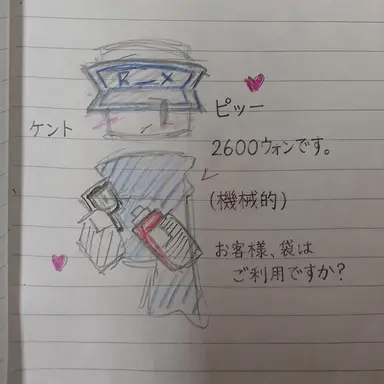 ケント
ピッー
2600ウォンです。
(機械的)
お客様、袋は
ご利用ですか?